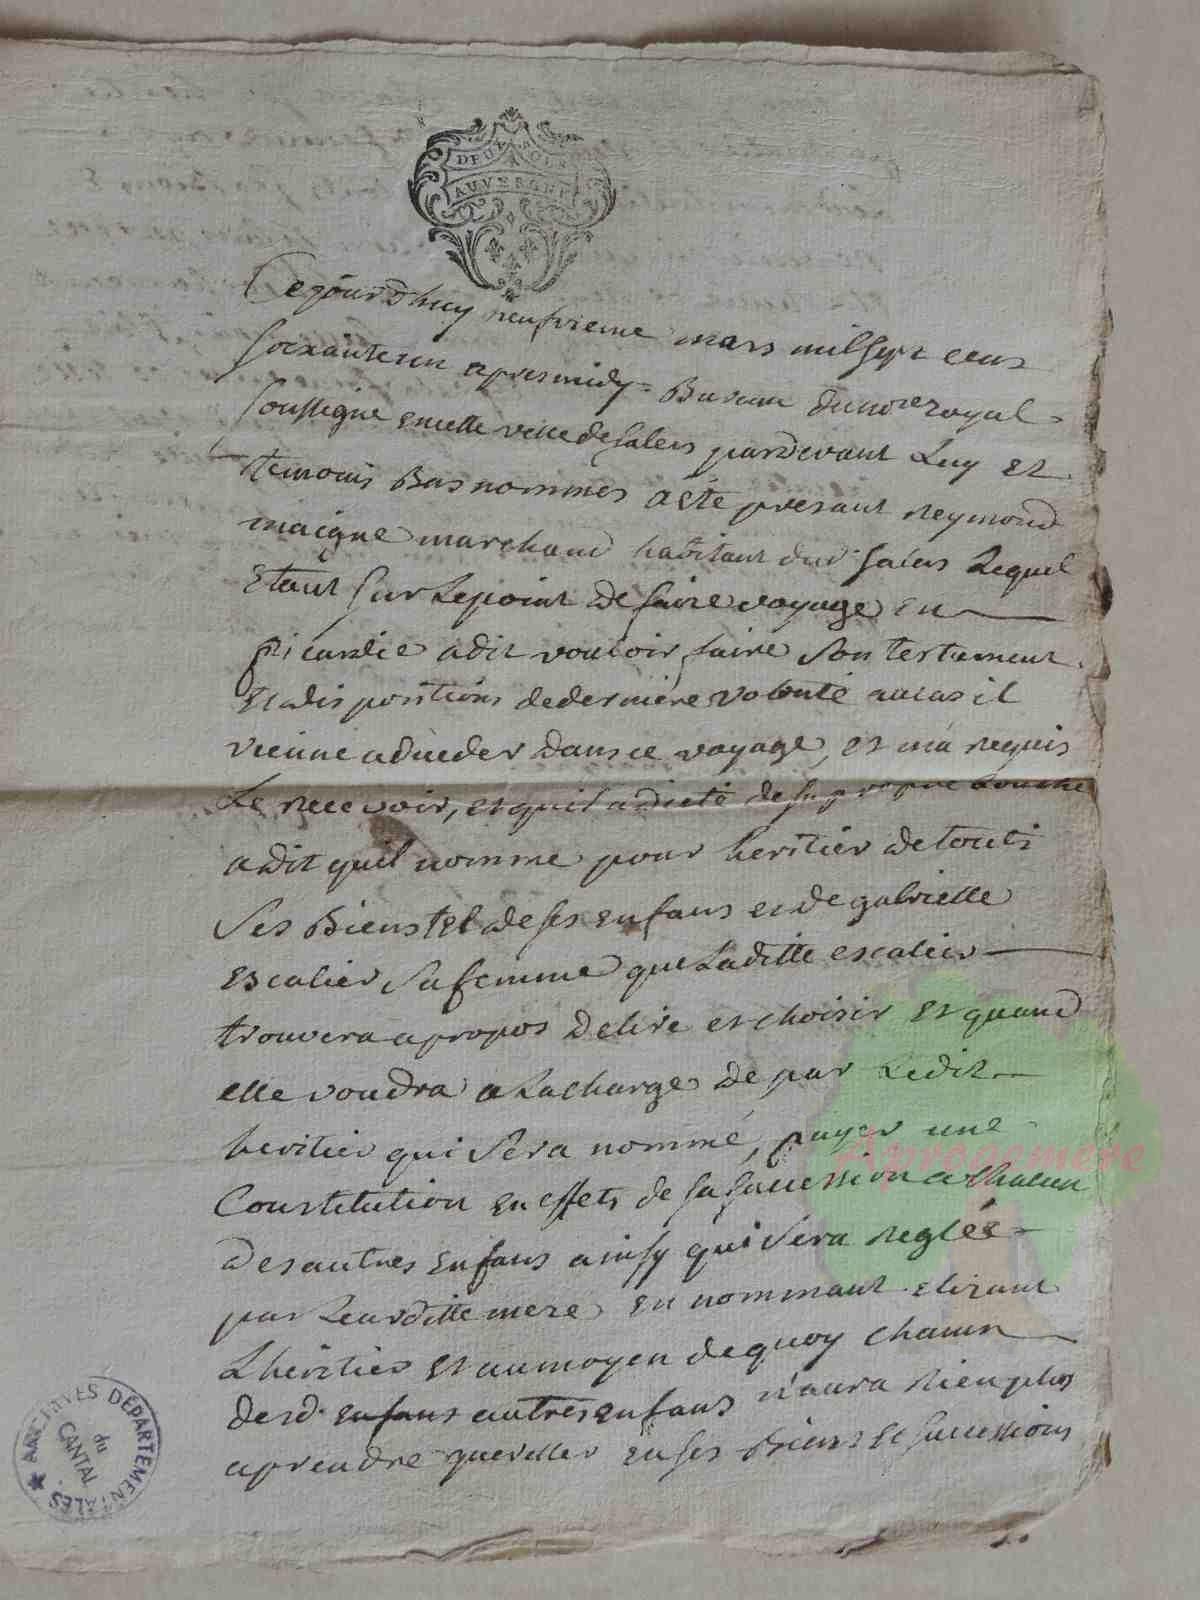 DEUX SOLS
AUVERGNE
Cejourdhuy neufvieme mars mil sept cens
soixante en apres midy = Bureau du nore royal
soussigné en cette ville de salers pardevant Luy et
temoins Bas nommes a eté presant reymond
maigne marchand habitant dud. salers Lequel
Etant sur Le point de faire voyage en
picardie a dit vouloir faire son testament
Et dispositions de derniere volonté au cas il
vienne a deceder dans ce voyage, et m'a requis
Le recevoir, et quil a dicté de sa propre bouche
a dit quil nomme pour heritier de touts
ses Biens tel de ses enfans et de gabrielle
Escalier sa femme que Laditte escalier
trouvera a propos d'elire et choisir et quand
elle voudra a La charge de par Ledit
heritier qui sera nommé, payer une
Constitution en effets de sa succession a Chacun
des autres enfans ainsy qui sera reglée
par Leur ditte mere en nommant elizant
Lhéritier et au moyen de quoy Chacun
desd. enfans autres enfans n'aura rien plus
a prendre quereller en ses Biens et successions
Aprogemere
ARCHIVES DÉPARTEMENTALES
du
CANTAL